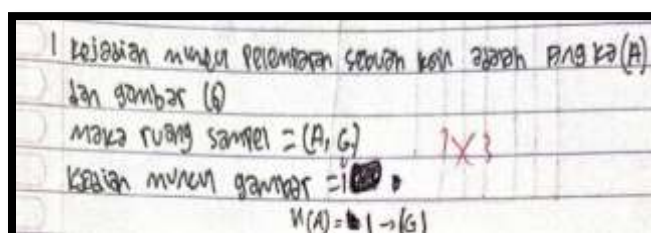 1 kejadian muncul pelemparan sebuah koin adalah angka (A)
dan gambar (G)
maka ruang sampel = (A, G)
kejadian muncul gambar = i
n(A) = 1 → (G)